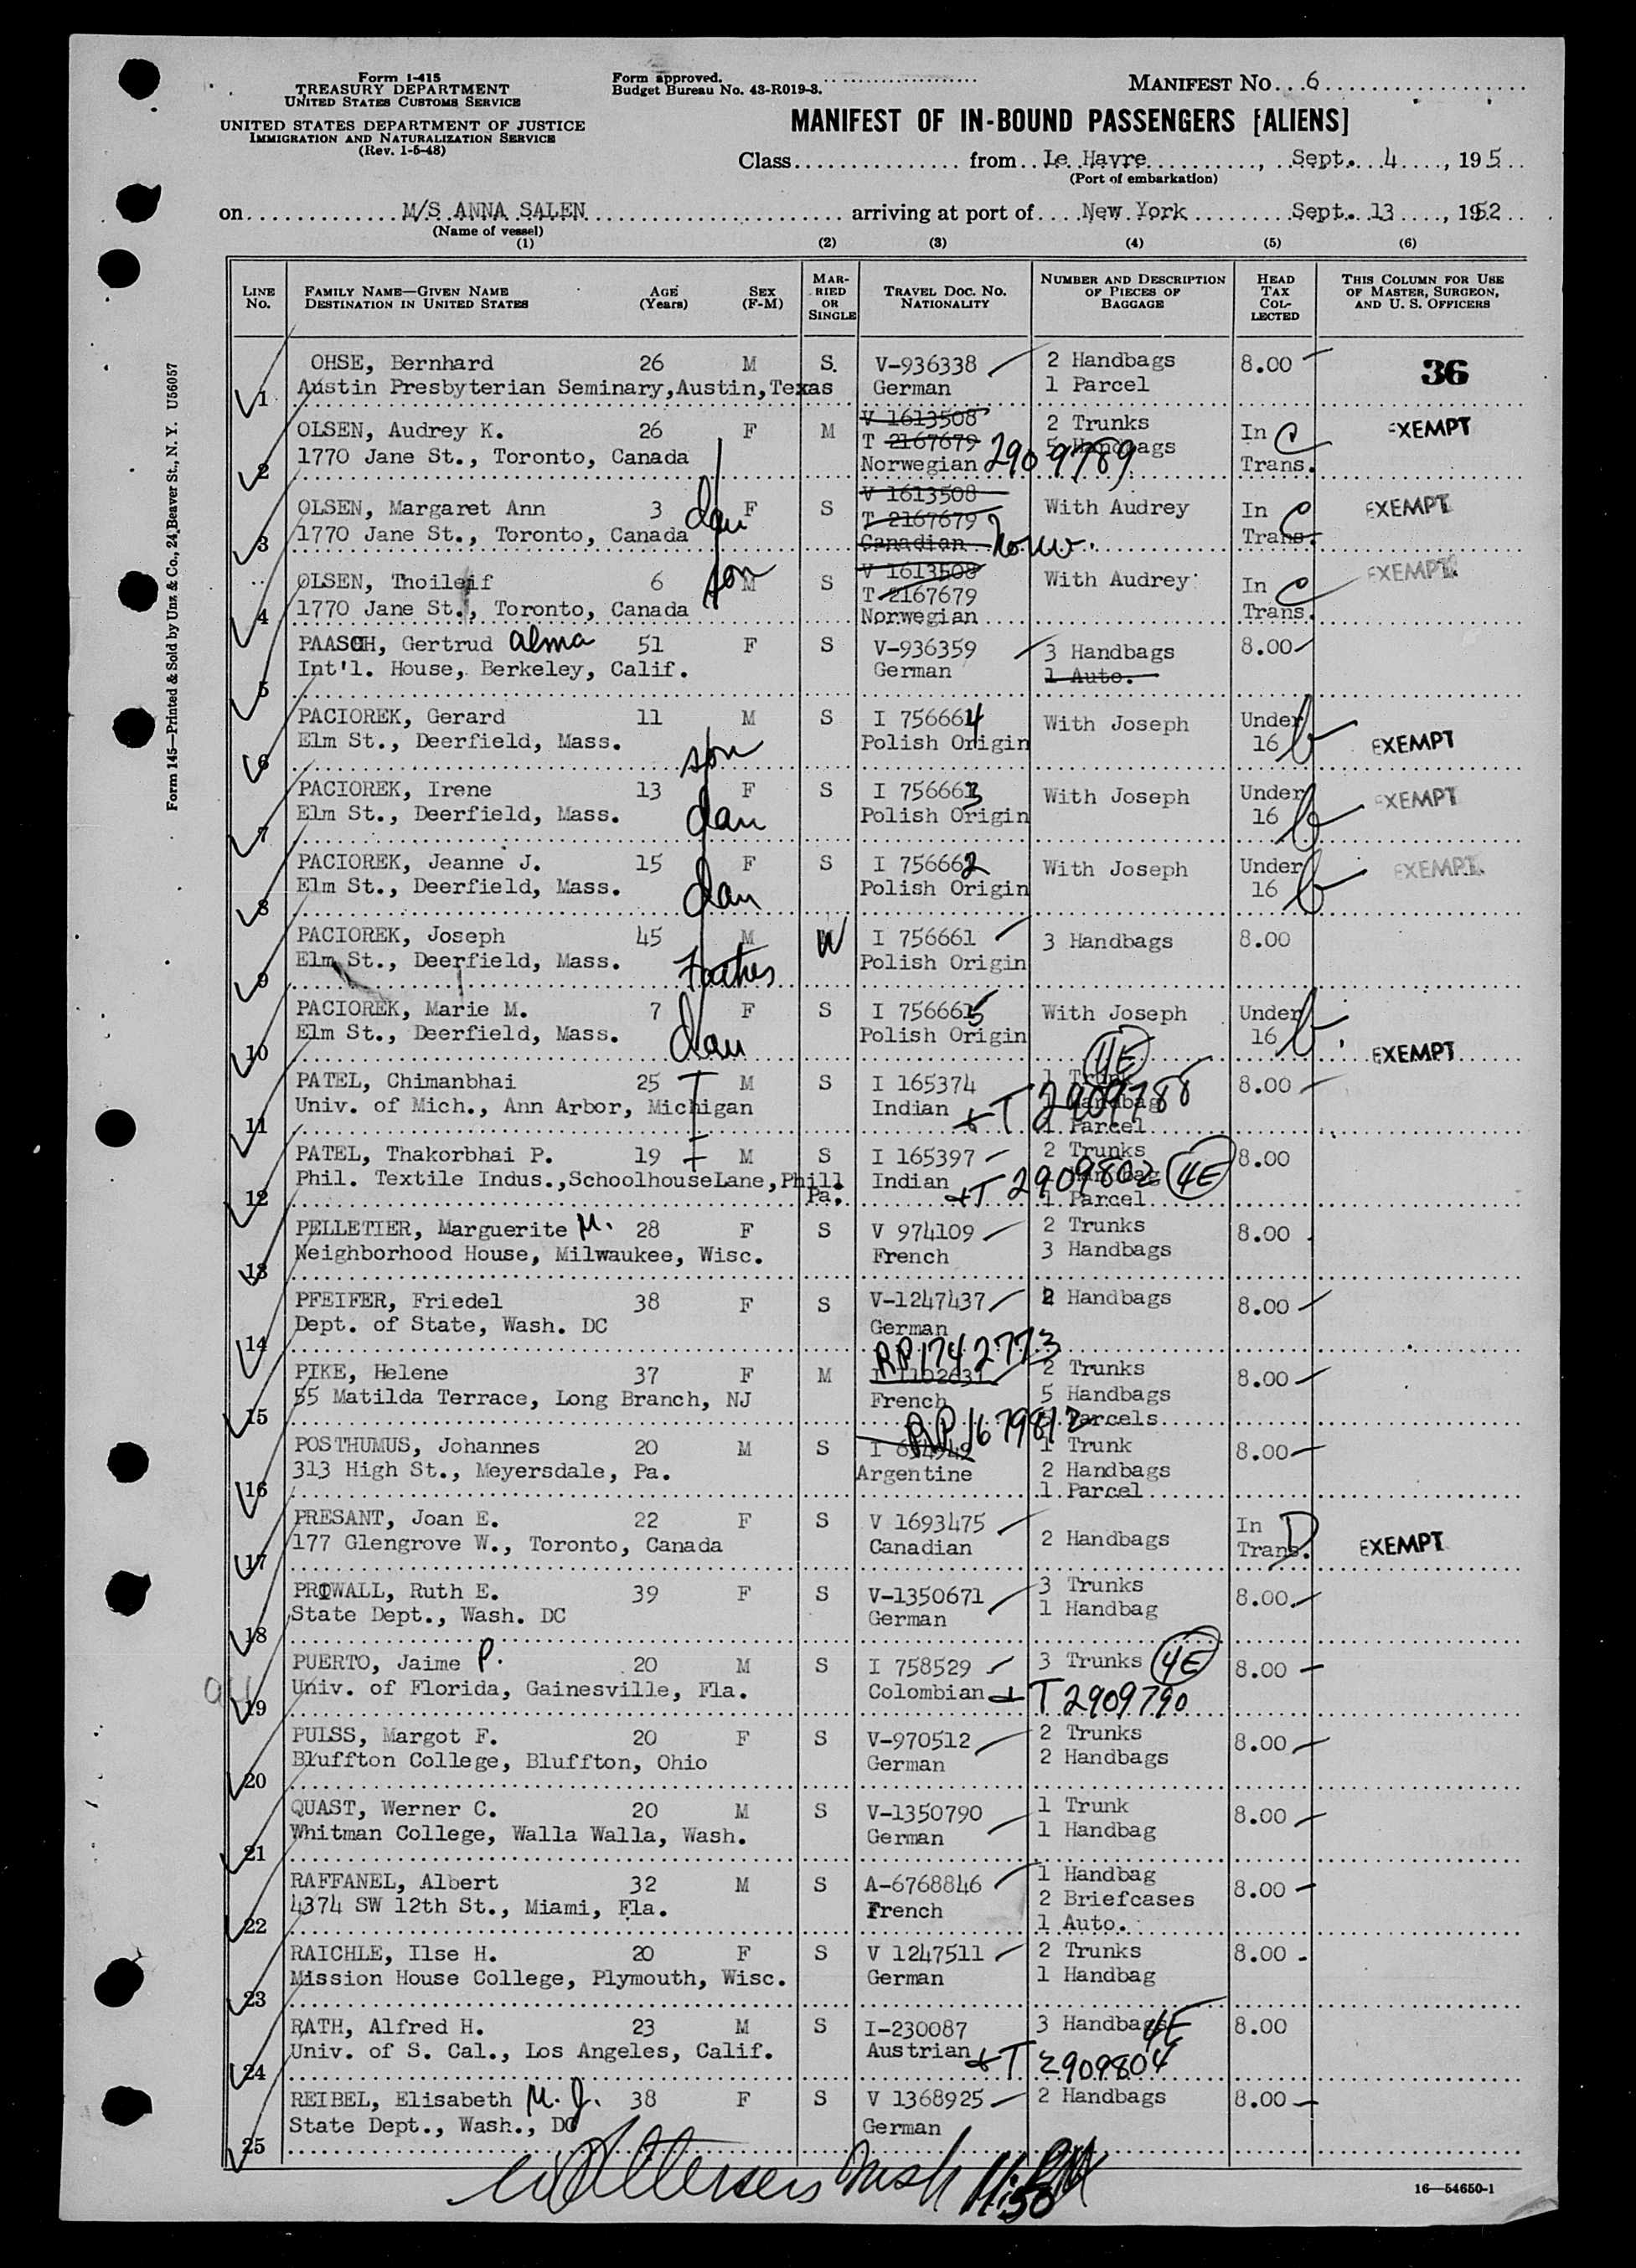 Form I-415
TREASURY DEPARTMENT
UNITED STATES CUSTOMS SERVICE
UNITED STATES DEPARTMENT OF JUSTICE
IMMIGRATION AND NATURALIZATION SERVICE
(Rev. 1-5-48)
Form approved.
Budget Bureau No. 43-R019-3.
MANIFEST NO. 6
MANIFEST OF IN-BOUND PASSENGERS [ALIENS]
Class from Le Havre, Sept. 4, 195
(Port of embarkation)
on M/S ANNA SALEN arriving at port of New York Sept. 13, 1952
(Name of vessel)
(1) (2) (3) (4) (5) (6)
LINE No. FAMILY NAME—GIVEN NAME DESTINATION IN UNITED STATES AGE (Years) SEX (F-M) MARRIED OR SINGLE TRAVEL DOC. NO. NATIONALITY NUMBER AND DESCRIPTION OF PIECES OF BAGGAGE HEAD TAX COLLECTED THIS COLUMN FOR USE OF MASTER, SURGEON, AND U. S. OFFICERS
OHSE, Bernhard 26 M S. V-936338 2 Handbags 8.00 36
1 Austin Presbyterian Seminary,Austin,Texas German 1 Parcel
V 1613508
OLSEN, Audrey K. 26 F M T 2167679 2909789 2 Trunks In C EXEMPT
2 1770 Jane St., Toronto, Canada Norwegian 5 Handbags Trans.
V 1613508
OLSEN, Margaret Ann 3 dau F S T 2167679 With Audrey In C EXEMPT
3 1770 Jane St., Toronto, Canada Canadian Norw. Trans.
V 1613508
OLSEN, Thoileif 6 son M S T 2167679 With Audrey In C EXEMPT
4 1770 Jane St., Toronto, Canada Norwegian Trans.
PAASCH, Gertrud Alma 51 F S V-936359 3 Handbags 8.00
5 Int'l. House, Berkeley, Calif. German 1 Auto.
PACIOREK, Gerard 11 M S I 756664 With Joseph Under
6 Elm St., Deerfield, Mass. son Polish Origin 16 b EXEMPT
PACIOREK, Irene 13 F S I 756663 With Joseph Under
7 Elm St., Deerfield, Mass. dau Polish Origin 16 b EXEMPT
PACIOREK, Jeanne J. 15 F S I 756662 With Joseph Under
8 Elm St., Deerfield, Mass. dau Polish Origin 16 b EXEMPT
PACIOREK, Joseph 45 M W I 756661 3 Handbags 8.00
9 Elm St., Deerfield, Mass. Father Polish Origin
PACIOREK, Marie M. 7 F S I 756665 With Joseph Under
10 Elm St., Deerfield, Mass. dau Polish Origin 16 b. EXEMPT
4E
PATEL, Chimanbhai 25 M S I 165374 1 Trunk 8.00
11 Univ. of Mich., Ann Arbor, Michigan Indian +T 2909788 1 Handbag
1 Parcel
PATEL, Thakorbhai P. 19 M S I 165397 2 Trunks 8.00
12 Phil. Textile Indus.,SchoolhouseLane,Phill. Pa. Indian +T 2909802 4E
1 Parcel
PELLETIER, Marguerite M. 28 F S V 974109 2 Trunks 8.00
13 Neighborhood House, Milwaukee, Wisc. French 3 Handbags
PFEIFER, Friedel 38 F S V-1247437 2 Handbags 8.00
14 Dept. of State, Wash. DC German
RP 1742773
PIKE, Helene 37 F M 2 Trunks 8.00
15 55 Matilda Terrace, Long Branch, NJ French 5 Handbags
Parcels
RP 1679812
POSTHUMUS, Johannes 20 M S 1 Trunk 8.00
16 313 High St., Meyersdale, Pa. Argentine 2 Handbags
1 Parcel
PRESANT, Joan E. 22 F S V 1693475 In D
17 177 Glengrove W., Toronto, Canada Canadian 2 Handbags Trans. EXEMPT
PRIWALL, Ruth E. 39 F S V-1350671 3 Trunks 8.00
18 State Dept., Wash. DC German 1 Handbag
PUERTO, Jaime P. 20 M S I 758529 3 Trunks 4E 8.00
19 Univ. of Florida, Gainesville, Fla. Colombian +T 2909790
PULSS, Margot F. 20 F S V-970512 2 Trunks 8.00
20 Bluffton College, Bluffton, Ohio German 2 Handbags
QUAST, Werner C. 20 M S V-1350790 1 Trunk 8.00
21 Whitman College, Walla Walla, Wash. German 1 Handbag
RAFFANEL, Albert 32 M S A-6768846 1 Handbag 8.00
22 4374 SW 12th St., Miami, Fla. French 2 Briefcases
1 Auto.
RAICHLE, Ilse H. 20 F S V 1247511 2 Trunks 8.00
23 Mission House College, Plymouth, Wisc. German 1 Handbag
RATH, Alfred H. 23 M S I-230087 3 Handbags 4E 8.00
24 Univ. of S. Cal., Los Angeles, Calif. Austrian +T 2909804
REIBEL, Elisabeth M. J. 38 F S V 1368925 2 Handbags 8.00
25 State Dept., Wash., DC German
16—54650-1
Form 145—Printed & Sold by Unz & Co., 24 Beaver St., N. Y. U56057